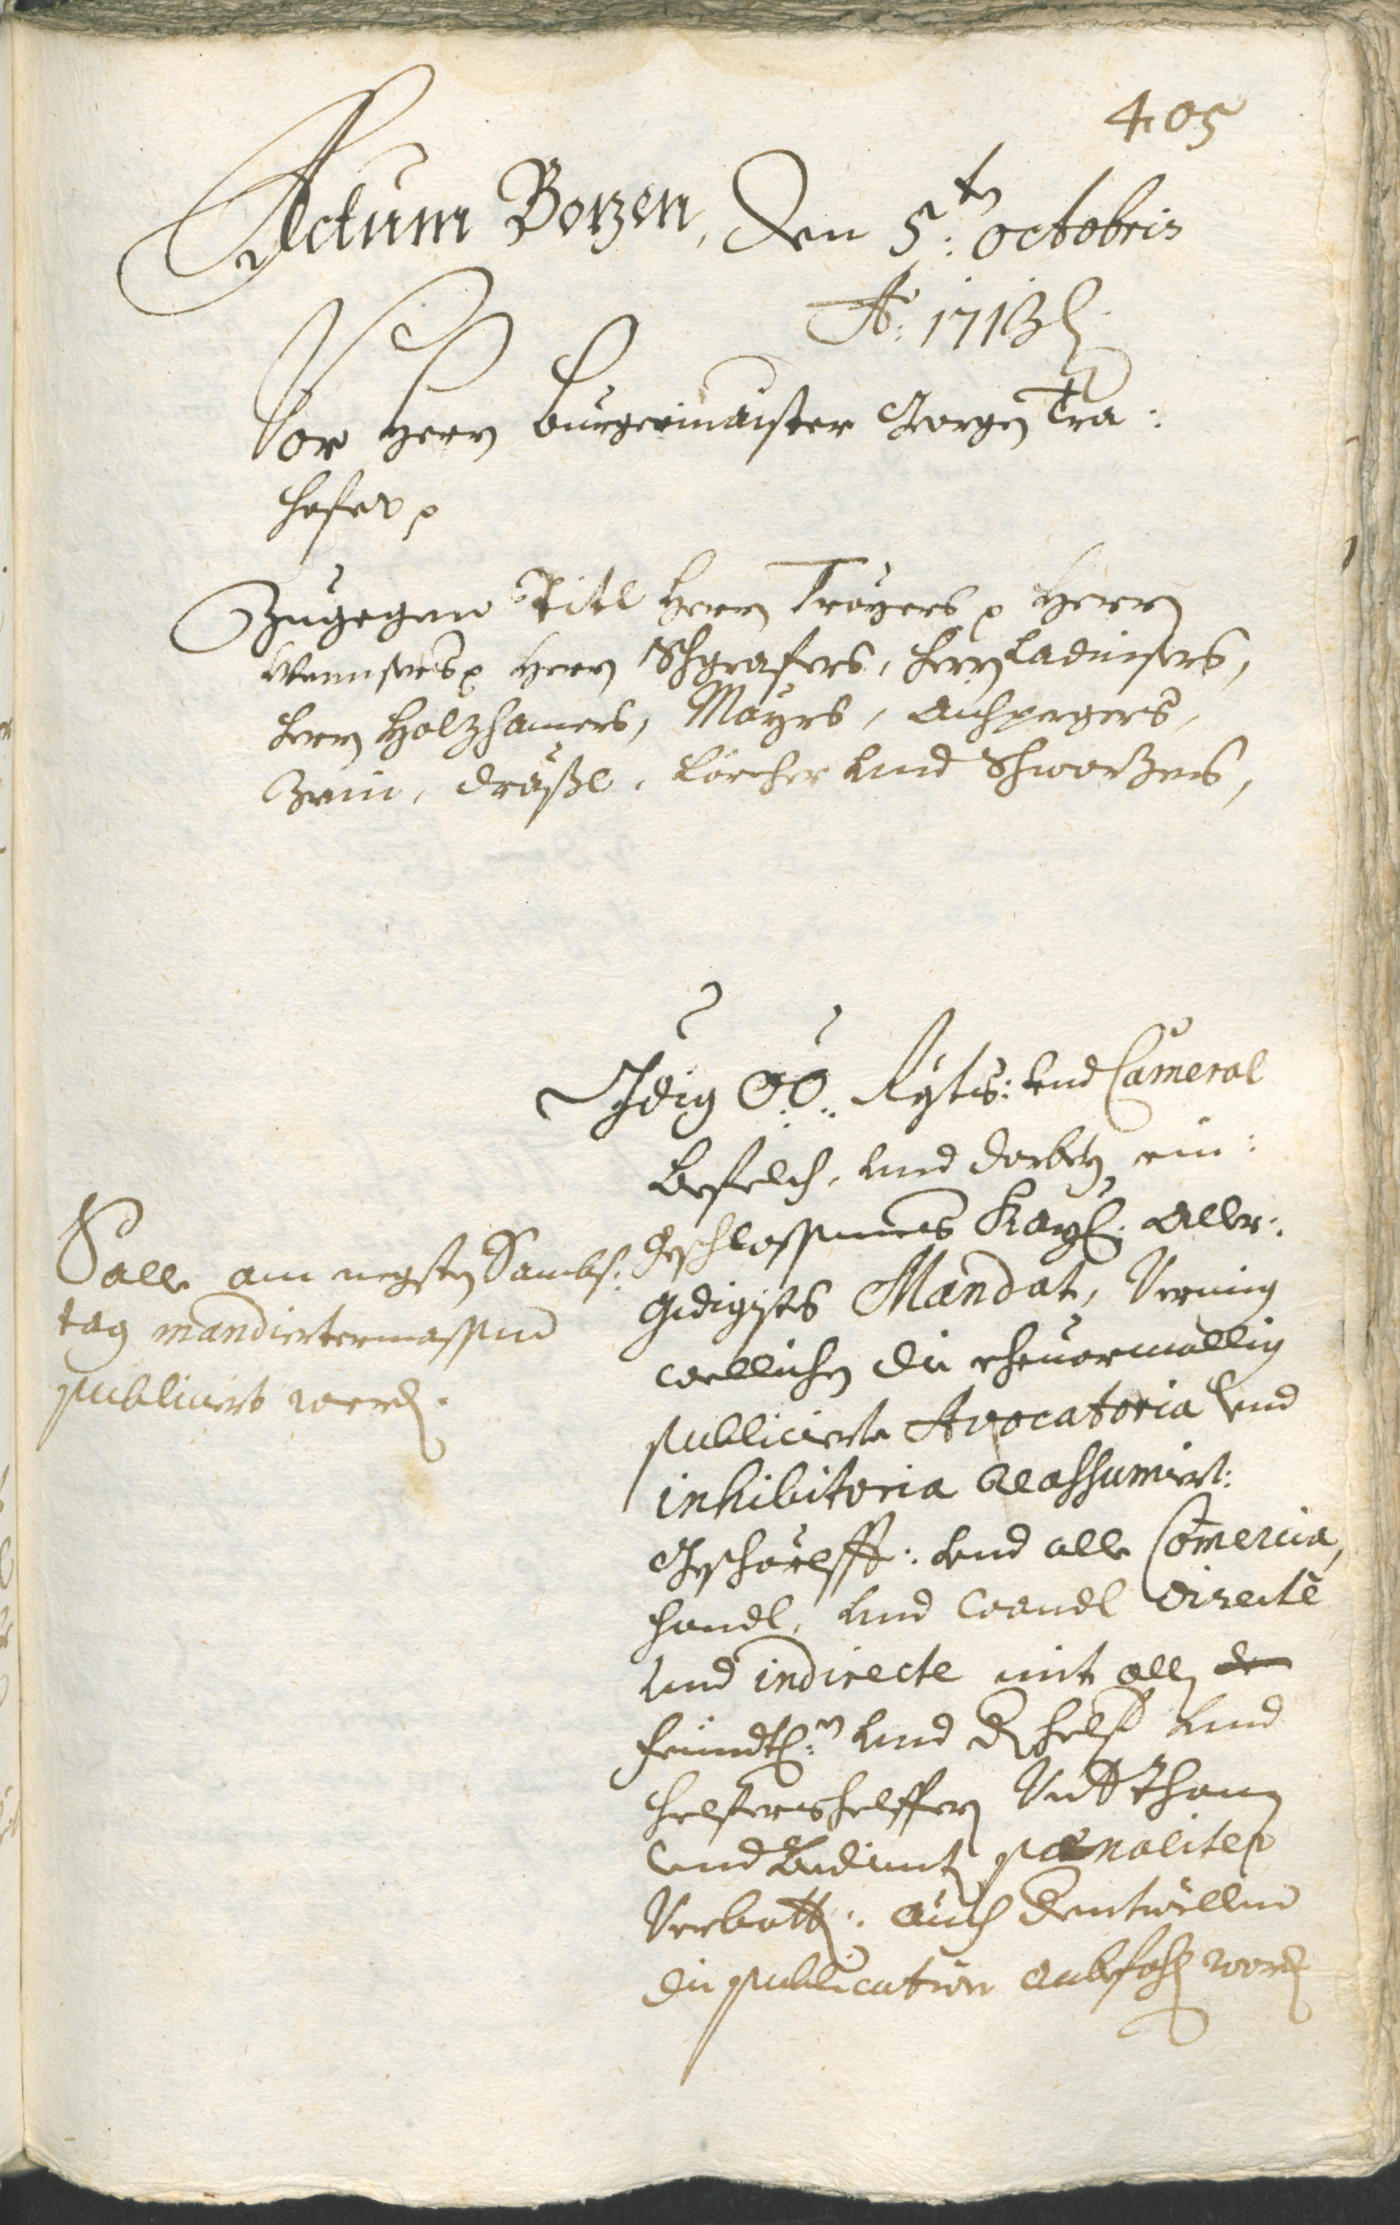 405
Actum Botzen, den 5.ten octobris
Ao. 1713
Vor Herrn Burgermaister Georgen Tra:
hofer
Zugegen Titl Herrn Troyers Herrn
Wennsers Herrn Schgrafers, Herrn Ladinsers,
Herrn Holzhamers, Mayrs, Aichpergers,
Zwin, Dräxl, Lörcher und Schwarzens,
Gdig OÖ. Rgts: und Cameral
Befelch, und darbey ein:
geschlossnes Kays: Aller:
gdigists Mandat, Vermig
wellichen die ehevormallig
publicierte Avocatoria und
inhibitoria Reassumiert:
Geschörfft: und alle Comercia,
handl, und wandl directè
und indirecte mit alln
feindtl:n und d helf und
helfershelffern
und poenaliter
Verbotten: auch dentwillen
die publication anbefohln worden
Solle am negsten Sambs:
tag mandiertermassen
publiciert werden.